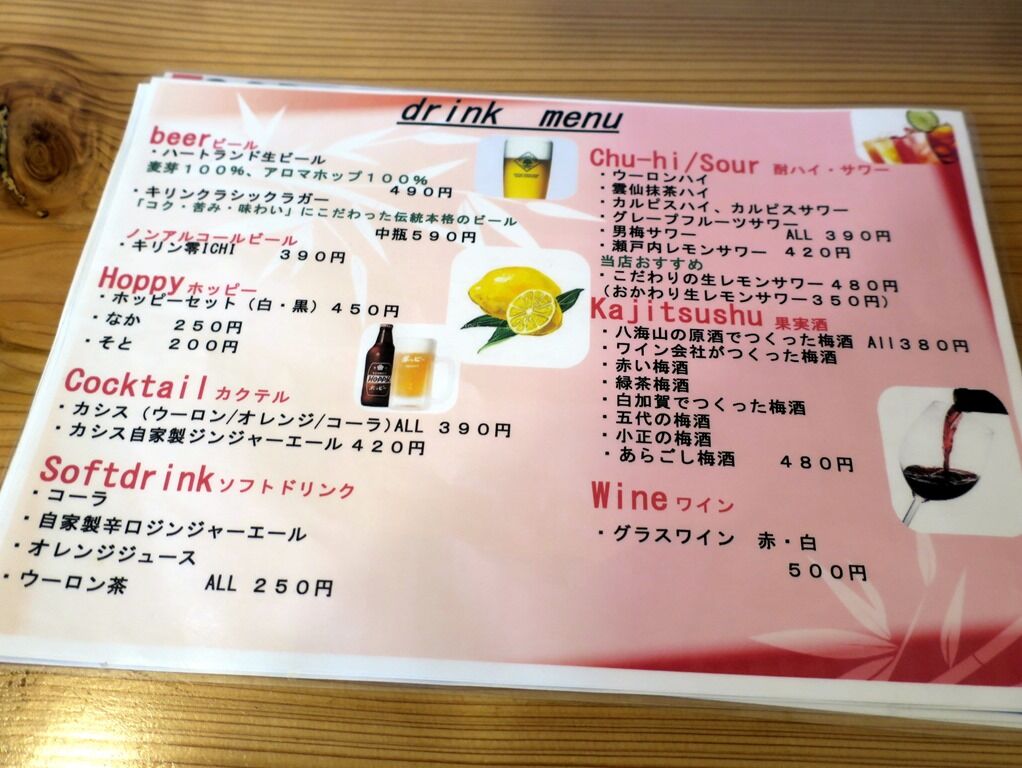 drink menu
beerビール
・ハートランド生ビール
麦芽１００％、アロマホップ１００％
４９０円
・キリンクラシックラガー
「コク・苦み・味わい」にこだわった伝統本格のビール
中瓶５９０円
ノンアルコールビール
・キリン零ICHI ３９０円
Hoppyホッピー
・ホッピーセット（白・黒）４５０円
・なか ２５０円
・そと ２００円
Cocktailカクテル
・カシス（ウーロン/オレンジ/コーラ)ALL ３９０円
・カシス自家製ジンジャーエール４２０円
Softdrinkソフトドリンク
・コーラ
・自家製辛口ジンジャーエール
・オレンジジュース
・ウーロン茶 ALL ２５０円
Chu-hi/Sour 酎ハイ・サワー
・ウーロンハイ
・雲仙抹茶ハイ
・カルピスハイ、カルピスサワー
・グレープフルーツサワー
・男梅サワー ALL ３９０円
・瀬戸内レモンサワー ４２０円
当店おすすめ
・こだわりの生レモンサワー４８０円
（おかわり生レモンサワー３５０円）
Kajitsushu 果実酒
・八海山の原酒でつくった梅酒 All３８０円
・ワイン会社がつくった梅酒
・赤い梅酒
・緑茶梅酒
・白加賀でつくった梅酒
・五代の梅酒
・小正の梅酒
・あらごし梅酒 ４８０円
Wineワイン
・グラスワイン 赤・白
５００円
HOPPY
ホッピー